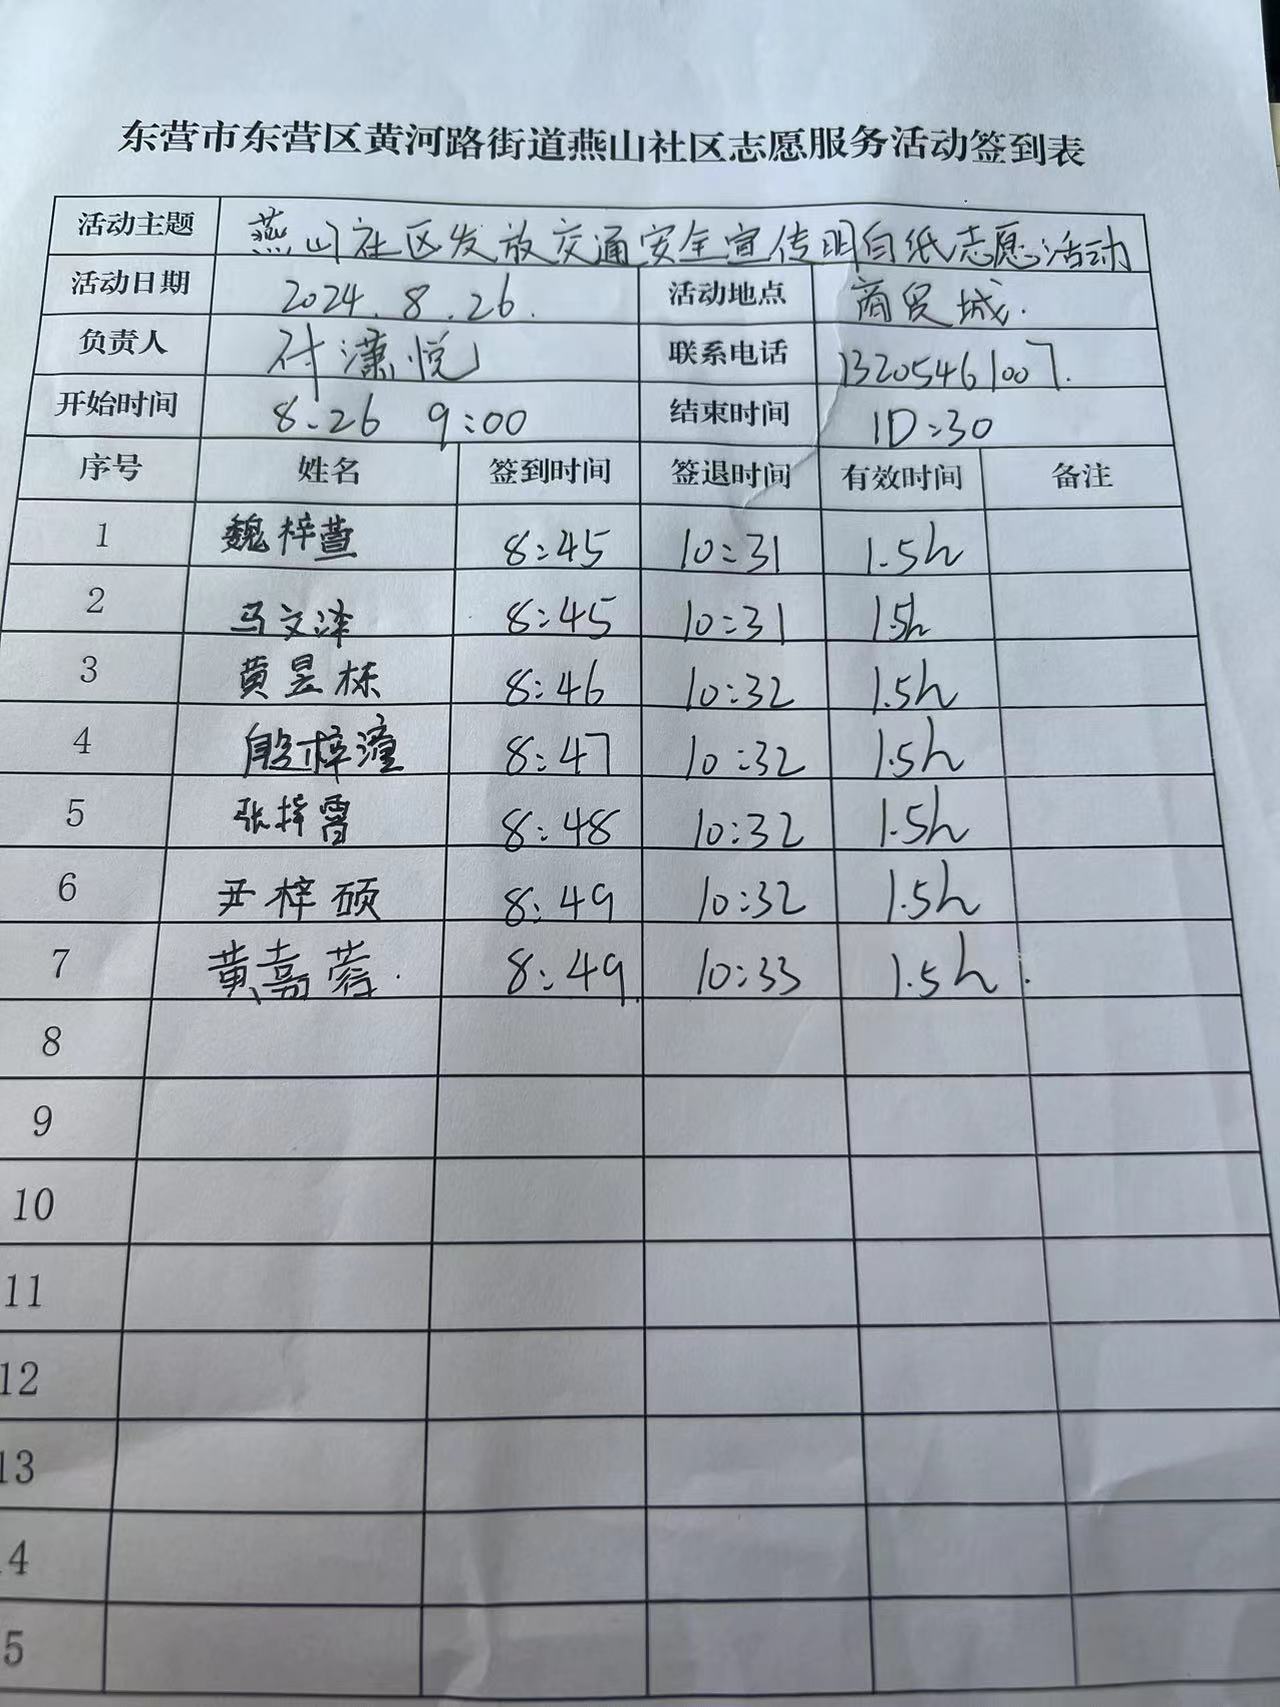 东营市东营区黄河路街道燕山社区志愿服务活动签到表
活动主题 燕山社区发放交通安全宣传明白纸志愿活动
活动日期 2024.8.26. 活动地点 商贸城.
负责人 付潇悦 联系电话 13205461007.
开始时间 8.26 9:00 结束时间 10:30
序号 姓名 签到时间 签退时间 有效时间 备注
1 魏梓萱 8:45 10:31 1.5h
2 马文泽 8:45 10:31 1.5h
3 黄昱栋 8:46 10:32 1.5h
4 殷梓潼 8:47 10:32 1.5h
5 张梓霄 8:48 10:32 1.5h
6 尹梓硕 8:49 10:32 1.5h
7 黄嘉蓉. 8:49. 10:33 1.5h.
8
9
10
11
12
13
4
5